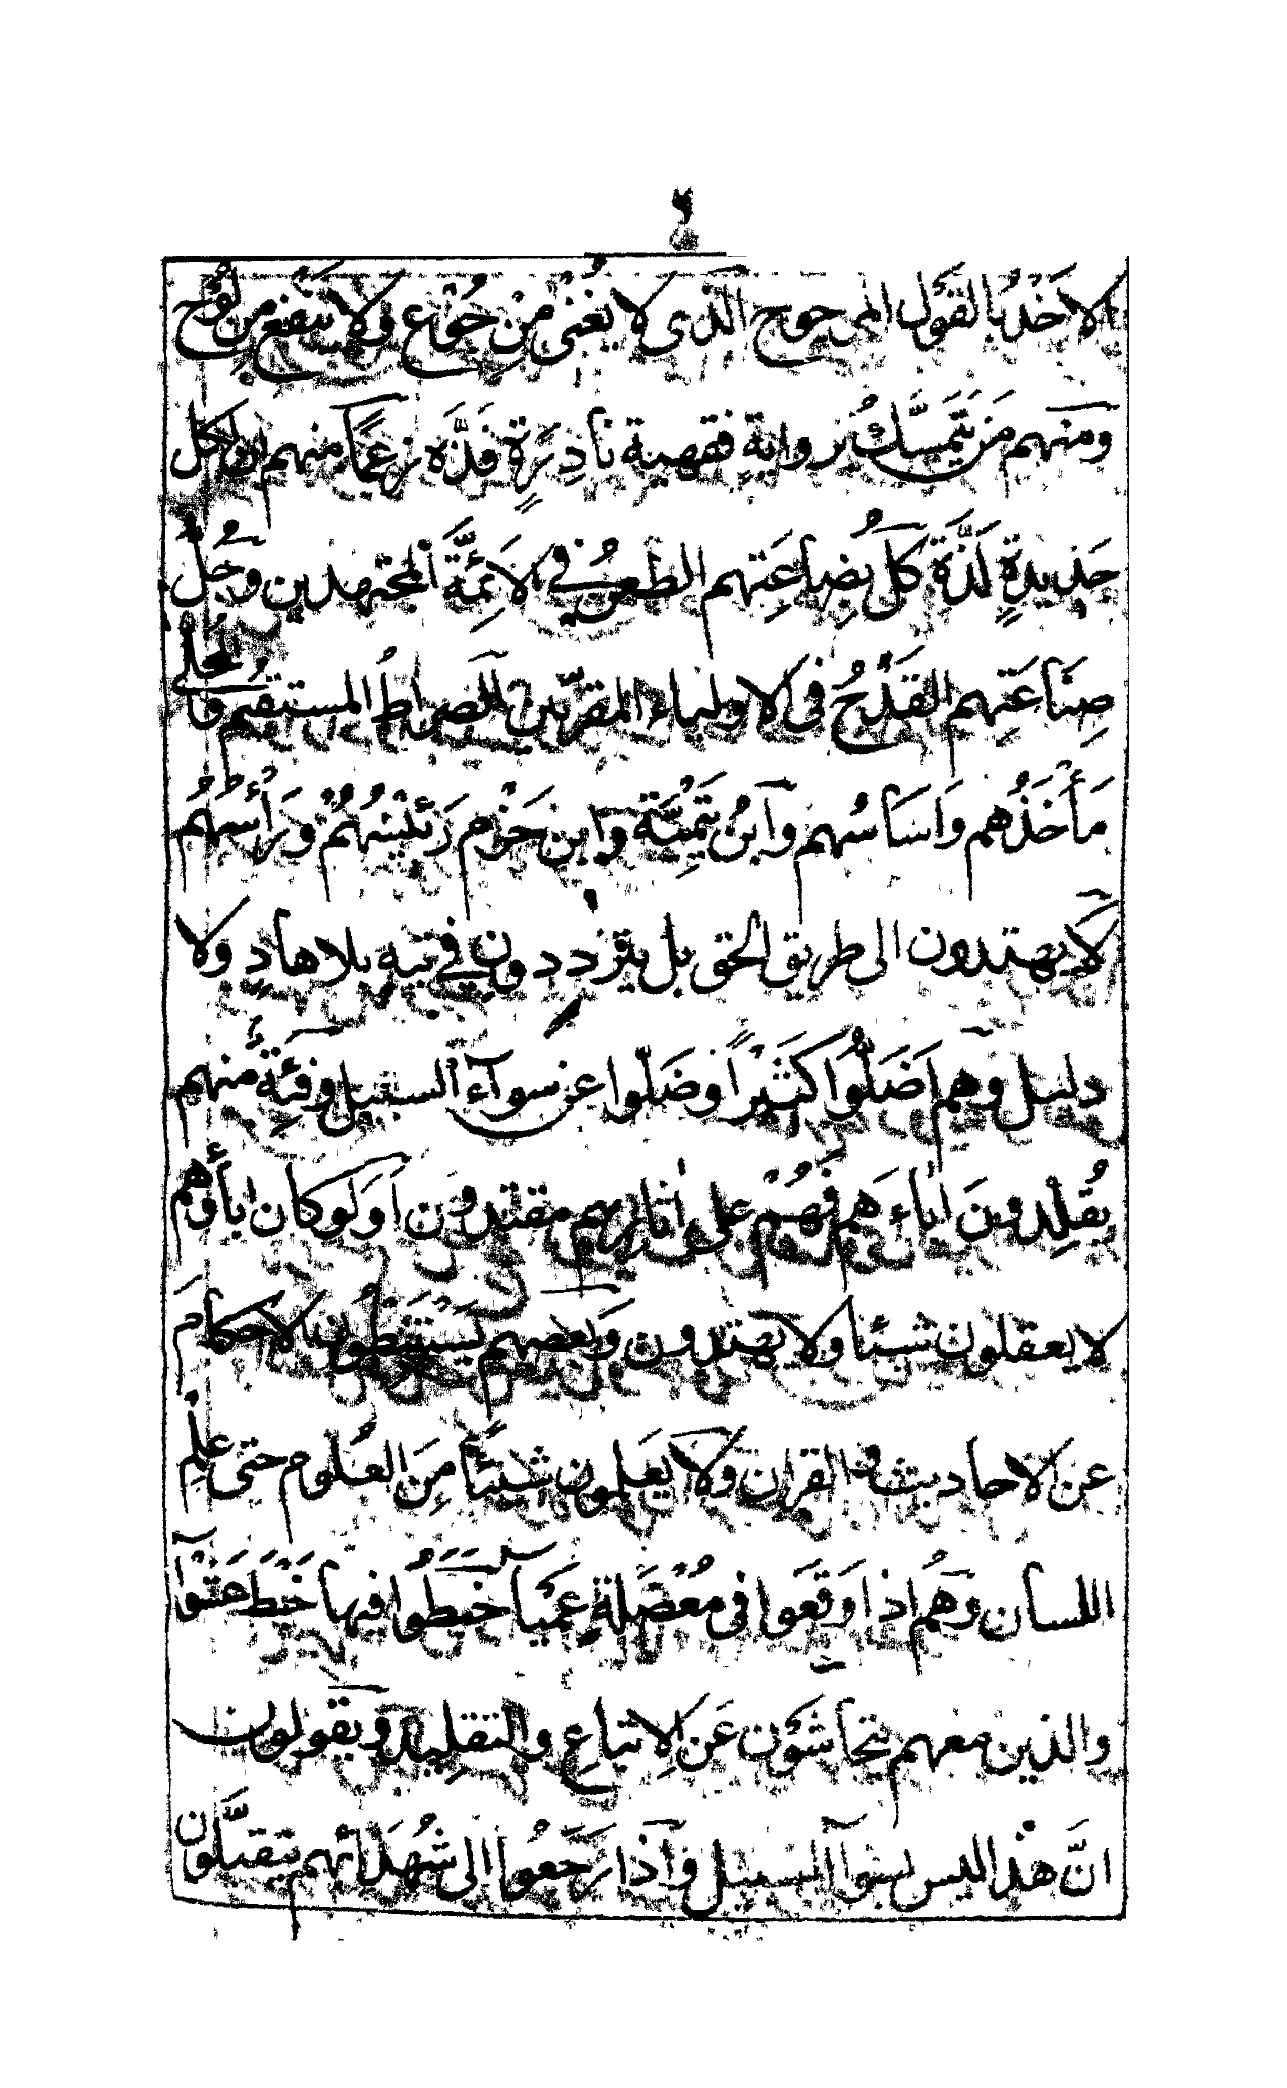 ٦
الاخذُ بالقَول المرجوح الَّذى لا يُغنى مِنْ جُوْعٍ ولا ينفع من لُوْحٍ
ومنهم مَن يَتَمَسَّكُ برواية فقهية نادِرَةٍ فَذَّةٍ زعمًا منهم ان لكل
جَديدةٍ لَذَّةٌ كلُّ بِضاعَتِهم الطَّعنُ في الاَئِمَّةِ المجتهدين وجُلُّ
صِنَاعَتِهم القَدْحُ فى الاولياء المقرَّبين للصراطُ المستقيم
مَأخَذُهم وَاَسَاسُهم وابنُ تَيْمِيَّةَ وابن حَزْم رَئِيْسُهُمْ وَرَأسُهُم
لا يهتدون الى طريق الحق بل يترددون في تيهٍ بلا هادٍ ولا
دليل وهم اَضَلُّوا كَثيْرًا وضَلّوا عن سوآء السبيل وفئةٌ منهم
يُقلِّدون اٰباءَهم فَهُمْ على اٰثارهم مقتدون اَوَلَو كان اٰباؤهم
لا يعقلون شيئا ولا يهتدون وبعضهم يَستَنبِطُون الاحكامَ
عن الاحاديث والقراٰن ولا يَعلمون شيئًا مِنَ العُلوم حتى عِلمِ
اللسان وَهُم اذا وَقَعوا فى مُعْضَلةٍ عَمْيآءَ خَبَطُوا فيها خَبْطَ عَشْوآءَ
والذين معهم يتحاشَوْن عَنِ الاتباعِ والتقليد ويقولون
انَّ هٰذا ليس بسوآء السبيل وَاِذا رَجَعوا الى شُهَدائهم يتقبَّلُون